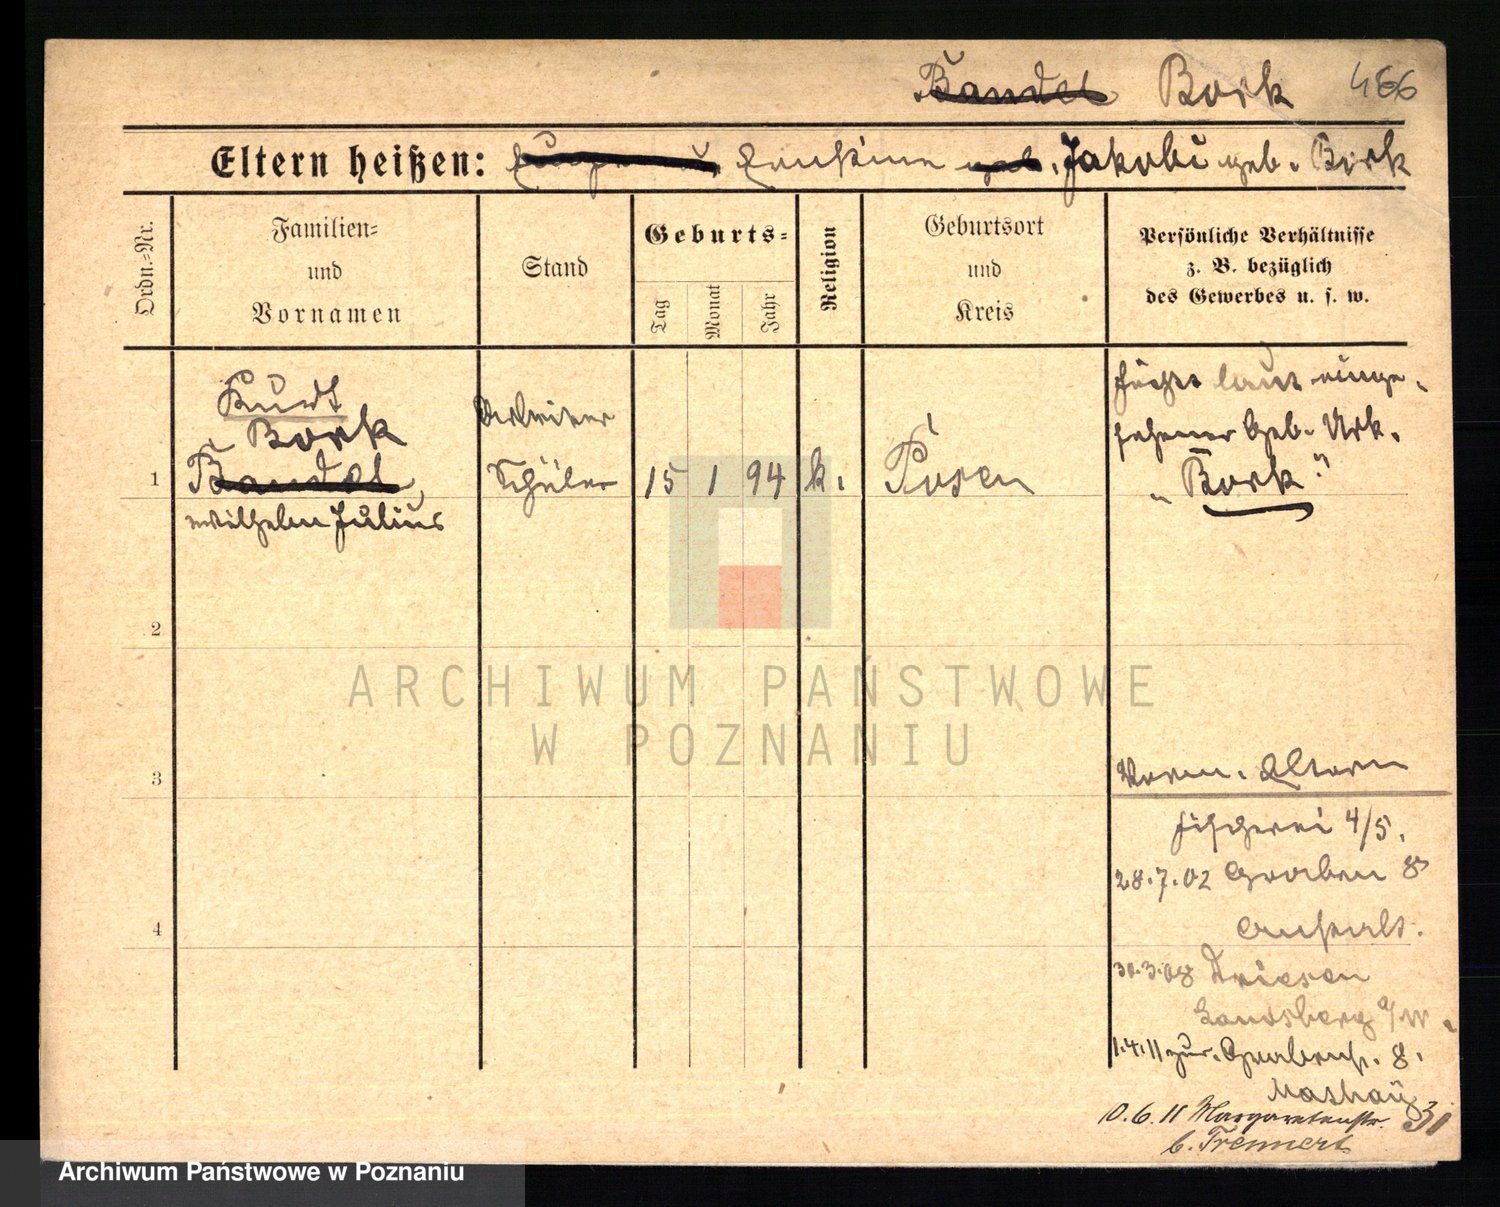 Bandel Bork 466
Eltern heißen: geb. Jakobi geb. Bork
Ordn.-Nr.
Familien-
und
Vornamen
Stand
Geburts-
Tag
Monat
Jahr
Religion
Geburtsort
und
Kreis
Persönliche Verhältnisse
z. B. bezüglich
des Gewerbes u. s. w.
Kurt
Bork
1 Bandel,
Wilhelm Julius
Schüler
15 1 94 k. Posen
laut einge-
sehener Geb. Urk.
„Bork"
2
3
4
Verm. Eltern
Fischerei 4/5.
28.7.02 Graben 8
30.3.08 Driesen
Landsberg a/W.
1.4.11 zur. Grabenstr. 8.
10.6.11 Margaretenstr. 30
b. Trennert
ARCHIWUM PAŃSTWOWE
W POZNANIU
Archiwum Państwowe w Poznaniu